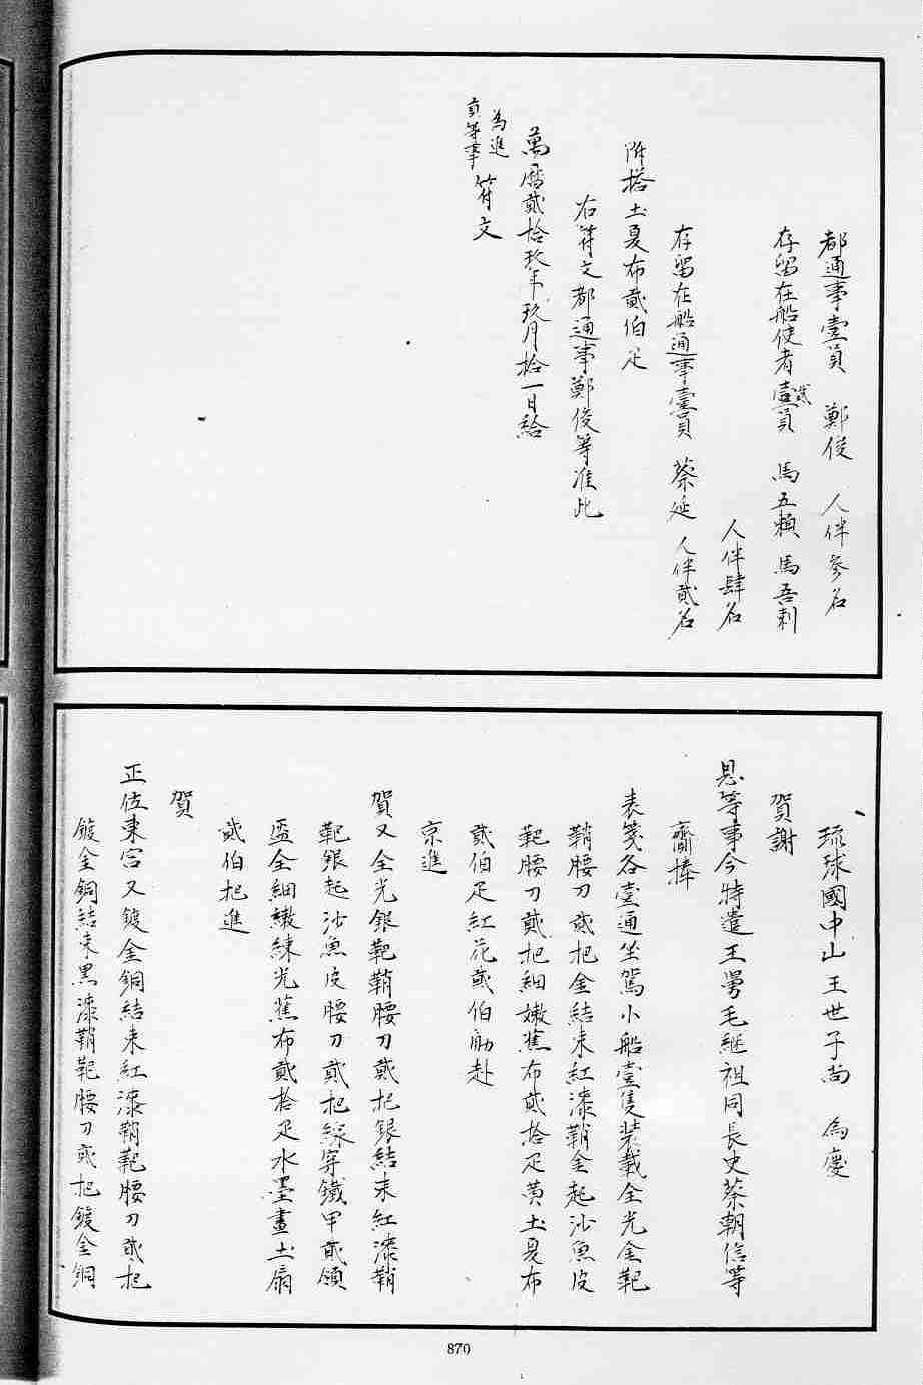 都通事壹員　鄭俊　人伴參名
存留在船使者壹貳員　馬五賴　馬吾剌
人伴肆名
存留在船通事壹員　蔡延　人伴貳名
附搭土夏布貳伯疋
右符文都通事鄭俊等准此
萬曆貳拾玖年玖月拾一日給
為進
貢等事符文
琉球國中山王世子尚　為慶
賀謝
恩等事今特遣王舅毛継祖同長史蔡朝信等
齎捧
表箋各壹通坐駕小船壹隻装載全光金靶
鞘腰刀貳把金結束紅漆鞘金起沙魚皮
靶腰刀貳把細嫩蕉布貳拾疋黃土夏布
貳伯疋紅花貳伯觔赴
京進
賀又全光銀靶鞘腰刀貳把銀結束紅漆鞘
靶銀起沙魚皮腰刀貳把綵穿鐵甲貳領
盔全細嫩練光蕉布貳拾疋水墨畫土扇
貳伯把進
賀
正位東宮又鍍金銅結束紅漆鞘靶腰刀貳把
鍍金銅結束黑漆鞘靶腰刀貳把鍍金銅
870